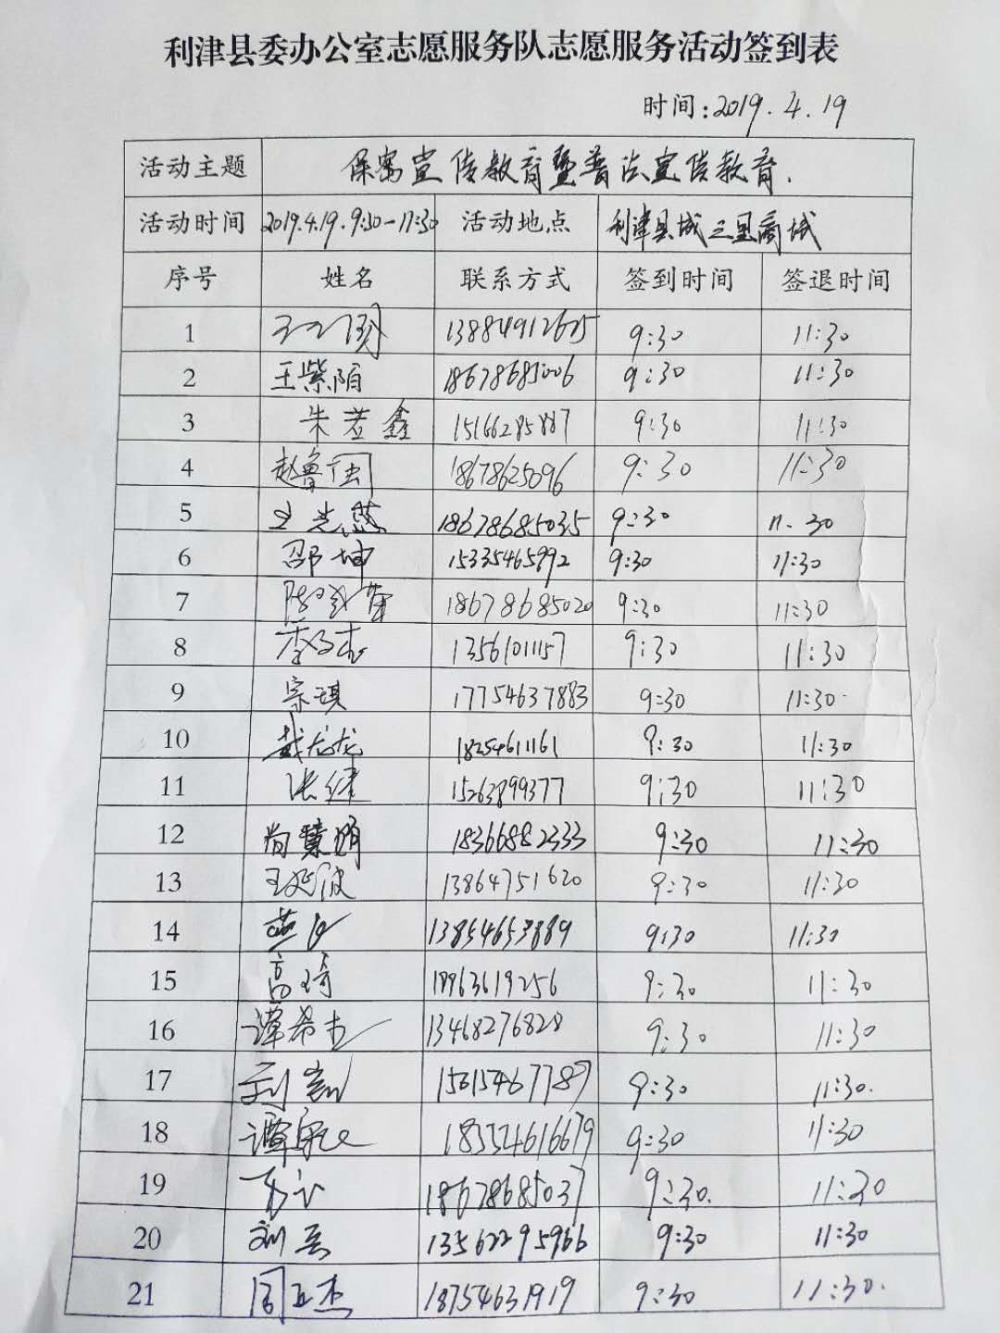 利津县委办公室志愿服务队志愿服务活动签到表
时间:2019.4.19
活动主题 保密宣传教育暨普法宣传教育.
活动时间 2019.4.19.9:30-11:30 活动地点 利津县城三里商城
序号 姓名 联系方式 签到时间 签退时间
1 13884912625 9:30 11:30
2 王紫陌 18678685006 9:30 11:30
3 朱若鑫 15166285887 9:30 11:30
4 赵鲁闽 18678625096 9:30 11:30
5 王 18678685035 9:30 11.30
6 邵坤 15335465992 9:30 11:30
7 18678685020 9:30 11:30
8 李 13561011157 9:30 11:30
9 宗琪 17754637883 9:30 11:30
10 戴龙龙 18254611161 9:30 11:30
11 张 15263899377 9:30 11:30
12 尚慧娟 18366882333 9:30 11:30
13 王延波 13864751620 9:30 11:30
14 13854653889 9:30 11:30
15 高琦 18963619256 9:30 11:30
16 谭希杰 13468276828 9:30 11:30
17 刘 15615467787 9:30 11:30.
18 谭 18554616679 9:30 11:30
19 18678685037 9:30. 11:30
20 刘 13562295966 9:30 11:30
21 周正杰 18754631919 9:30 11:30.